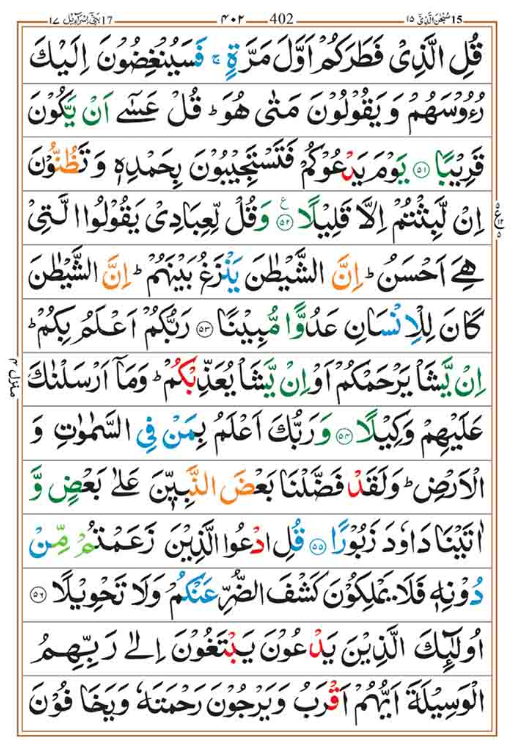 15 سُبْحٰنَ الَّذِیْ ۱۵ ۴۰۲ 402 17 بَنِیْۤ اِسْرَآءِیْل ۱۷
قُلِ الَّذِیْ فَطَرَكُمْ اَوَّلَ مَرَّةٍ ۚ فَسَیُنْغِضُوْنَ اِلَیْكَ
رُءُوْسَهُمْ وَ یَقُوْلُوْنَ مَتٰى هُوَ ؕ قُلْ عَسٰۤى اَنْ یَّكُوْنَ
قَرِیْبًا ﴿۵۱﴾ یَوْمَ یَدْعُوْكُمْ فَتَسْتَجِیْبُوْنَ بِحَمْدِهٖ وَ تَظُنُّوْنَ
اِنْ لَّبِثْتُمْ اِلَّا قَلِیْلًا ﴿۵۲﴾ ع وَ قُلْ لِّعِبَادِیْ یَقُوْلُوا الَّتِیْ
هِیَ اَحْسَنُ ؕ اِنَّ الشَّیْطٰنَ یَنْزَغُ بَیْنَهُمْ ؕ اِنَّ الشَّیْطٰنَ
كَانَ لِلْاِنْسَانِ عَدُوًّا مُّبِیْنًا ﴿۵۳﴾ رَبُّكُمْ اَعْلَمُ بِكُمْ ؕ
اِنْ یَّشَاْ یَرْحَمْكُمْ اَوْ اِنْ یَّشَاْ یُعَذِّبْكُمْ ؕ وَ مَاۤ اَرْسَلْنٰكَ
عَلَیْهِمْ وَكِیْلًا ﴿۵۴﴾ وَ رَبُّكَ اَعْلَمُ بِمَنْ فِی السَّمٰوٰتِ وَ
الْاَرْضِ ؕ وَ لَقَدْ فَضَّلْنَا بَعْضَ النَّبِیّٖنَ عَلٰى بَعْضٍ وَّ
اٰتَیْنَا دَاوٗدَ زَبُوْرًا ﴿۵۵﴾ قُلِ ادْعُوا الَّذِیْنَ زَعَمْتُمْ مِّنْ
دُوْنِهٖ فَلَا یَمْلِكُوْنَ كَشْفَ الضُّرِّ عَنْكُمْ وَ لَا تَحْوِیْلًا ﴿۵۶﴾
اُولٰٓىِٕكَ الَّذِیْنَ یَدْعُوْنَ یَبْتَغُوْنَ اِلٰى رَبِّهِمُ
الْوَسِیْلَةَ اَیُّهُمْ اَقْرَبُ وَ یَرْجُوْنَ رَحْمَتَهٗ وَ یَخَافُوْنَ
منزل ۴